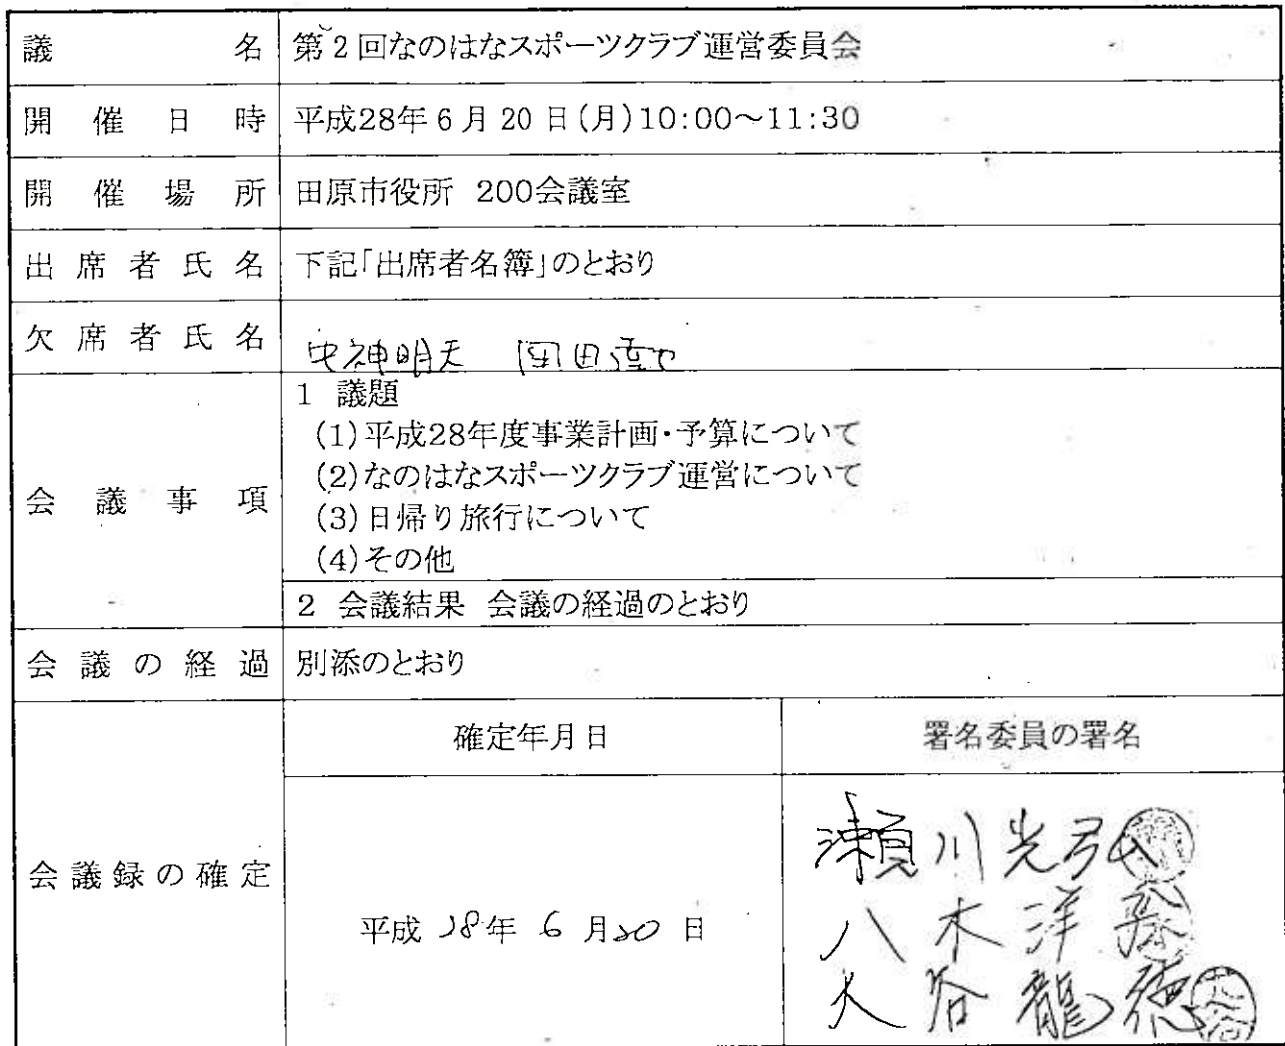 議名 第2回なのはなスポーツクラブ運営委員会
開催日時 平成28年6月20日(月)10:00~11:30
開催場所 田原市役所 200会議室
出席者氏名 下記「出席者名簿」のとおり
欠席者氏名 中神明夫 岡田
1 議題
(1)平成28年度事業計画・予算について
(2)なのはなスポーツクラブ運営について
会議事項
(3)日帰り旅行について
(4)その他
2 会議結果 会議の経過のとおり
会議の経過 別添のとおり
確定年月日 署名委員の署名
会議録の確定
平成28年6月20日
瀬川光弘
八木洋
大谷龍徳